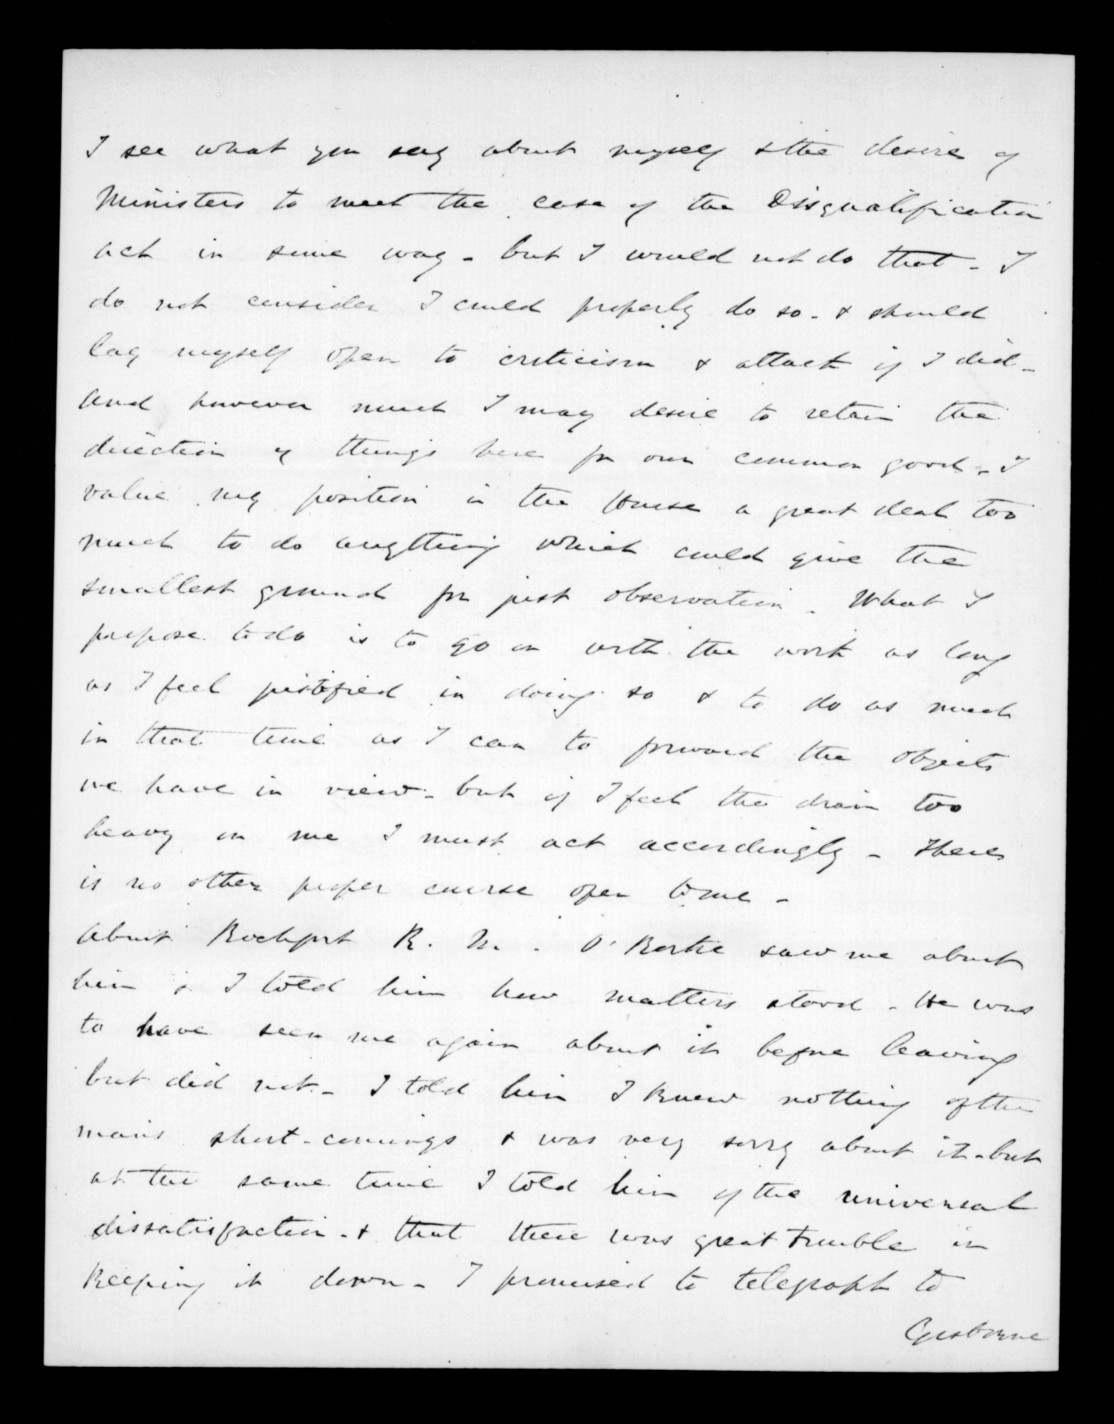 I see what you say about myself & the desire of
Ministers to meet the case of the Disqualification
act in some way - but I would not do that - I
do not consider I could properly do so - & should
lay myself open to criticism & attack if I did -
And however much I may desire to retain the
direction of things here for our common good - I
value my position in the House a great deal too
much to do anything which could give the
smallest ground for just observation. What I
propose to do is to go on with the work as long
as I feel justified in doing so & to do as much
in that time as I can to forward the objects
we have in view - but if I feel the drain too
heavy on me I must act accordingly - There
is no other proper course open to me -
About Rochfort R. M. - O'Rorke saw me about
him & I told him how matters stood - He was
to have seen me again about it before leaving
but did not - I told him I knew nothing of the
man's short-comings & was very sorry about it - but
at the same time I told him of the universal
dissatisfaction - & that there was great trouble in
keeping it down - I promised to telegraph to
Gisborne